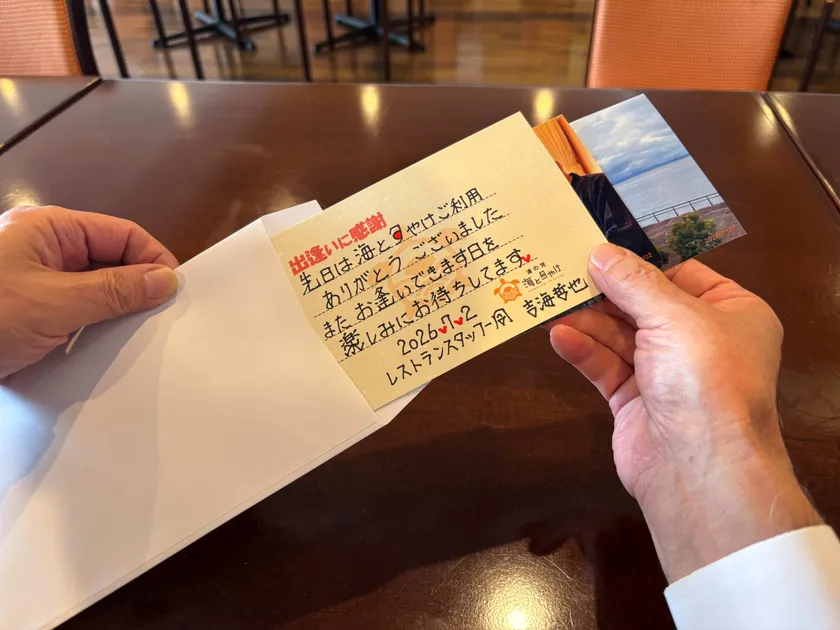 出逢いに感謝
先日は海と夕やけご利用
ありがとうございました
またお釜いできます日を
楽しみにお待ちしてます
2026♥7♥2
レストランスタッフ一同 吉海哲也
海の宿
海と夕やけ